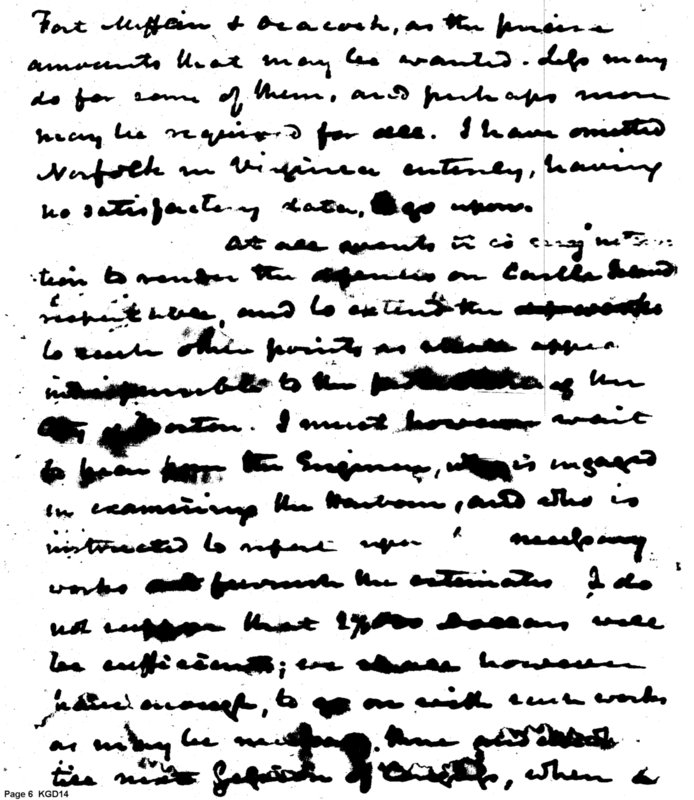 Fort Mifflin & as the precise
amounts that may be wanted. Less may
do for some of them, and perhaps more
may be required for all. I have omitted
Norfolk in Virginia entirely, having
no satisfactory data, to go upon.
At all events it is my
tion to render the defences on Castle Island
respectable, and to extend the works
to such other points as shall appear
indispensible to the protection of the
City of Boston. I must however wait
to hear from the Engineer, who is engaged
in examining the Harbour, and who is
instructed to report upon necessary
works and furnish the estimates I do
not suppose that dollars will
be sufficient; we shall however
have enough, to go on with such works
as may be necessary there
till next Session of Congress, when a
Page 6 KGD14